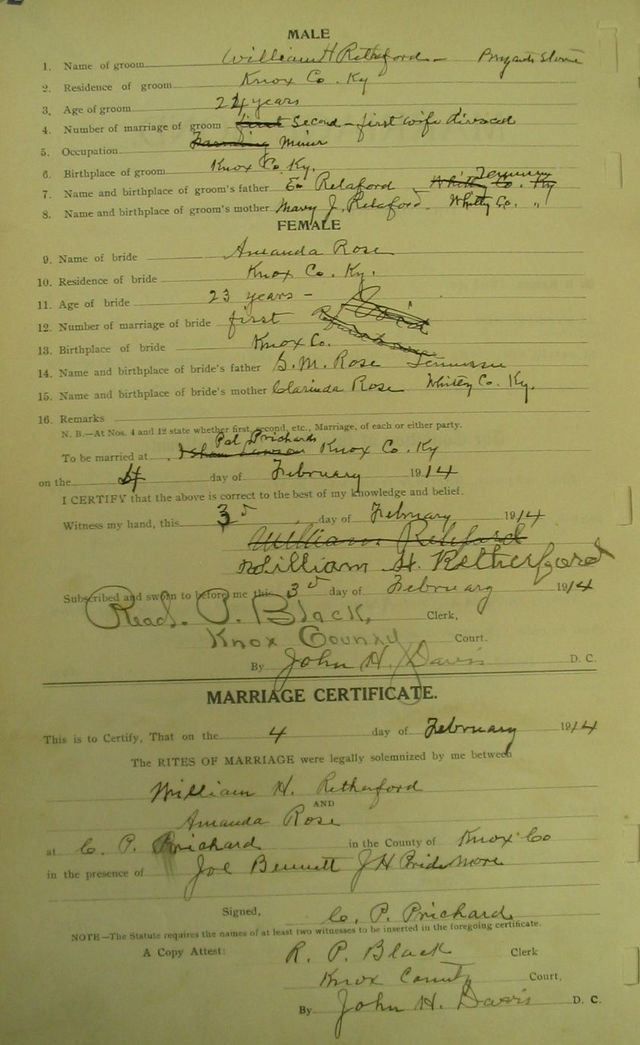 MALE
1. Name of groom William H Retherford - Bryants Store
2. Residence of groom Knox Co. Ky
3. Age of groom 24 years
4. Number of marriage of groom first Second - first wife divorced
5. Occupation Farming Miner
6. Birthplace of groom Knox Co. Ky.
7. Name and birthplace of groom's father Relaford Whitley Co. Ky
8. Name and birthplace of groom's mother Mary J. Relaford Whitley Co. "
FEMALE
9. Name of bride Amanda Rose
10. Residence of bride Knox Co. Ky.
11. Age of bride 23 years -
12. Number of marriage of bride first
13. Birthplace of bride Knox Co.
14. Name and birthplace of bride's father S. M. Rose Tennessee
15. Name and birthplace of bride's mother Clarinda Rose Whitley Co. Ky.
16. Remarks
N. B.—At Nos. 4 and 12 state whether first, second, etc., Marriage, of each or either party.
Prichards
To be married at Knox Co. Ky
on the 4 day of February 1914
I CERTIFY that the above is correct to the best of my knowledge and belief.
Witness my hand, this 3d day of February 1914
William Reliford
William H. Retherford
Subscribed and sworn to before me this 3d day of February 1914
Read. P. Black, Clerk,
Knox County Court.
By John H. Davis D. C.
MARRIAGE CERTIFICATE.
This is to Certify, That on the 4 day of February 1914
The RITES OF MARRIAGE were legally solemnized by me between
William H. Retherford
AND
Amanda Rose
at C. P. Prichard in the County of Knox Co
in the presence of Joe Bennett J H Pridemore
Signed, C. P. Prichard
NOTE—The Statute requires the names of at least two witnesses to be inserted in the foregoing certificate.
A Copy Attest: R. P. Black Clerk
Knox County Court,
By John H. Davis D. C.